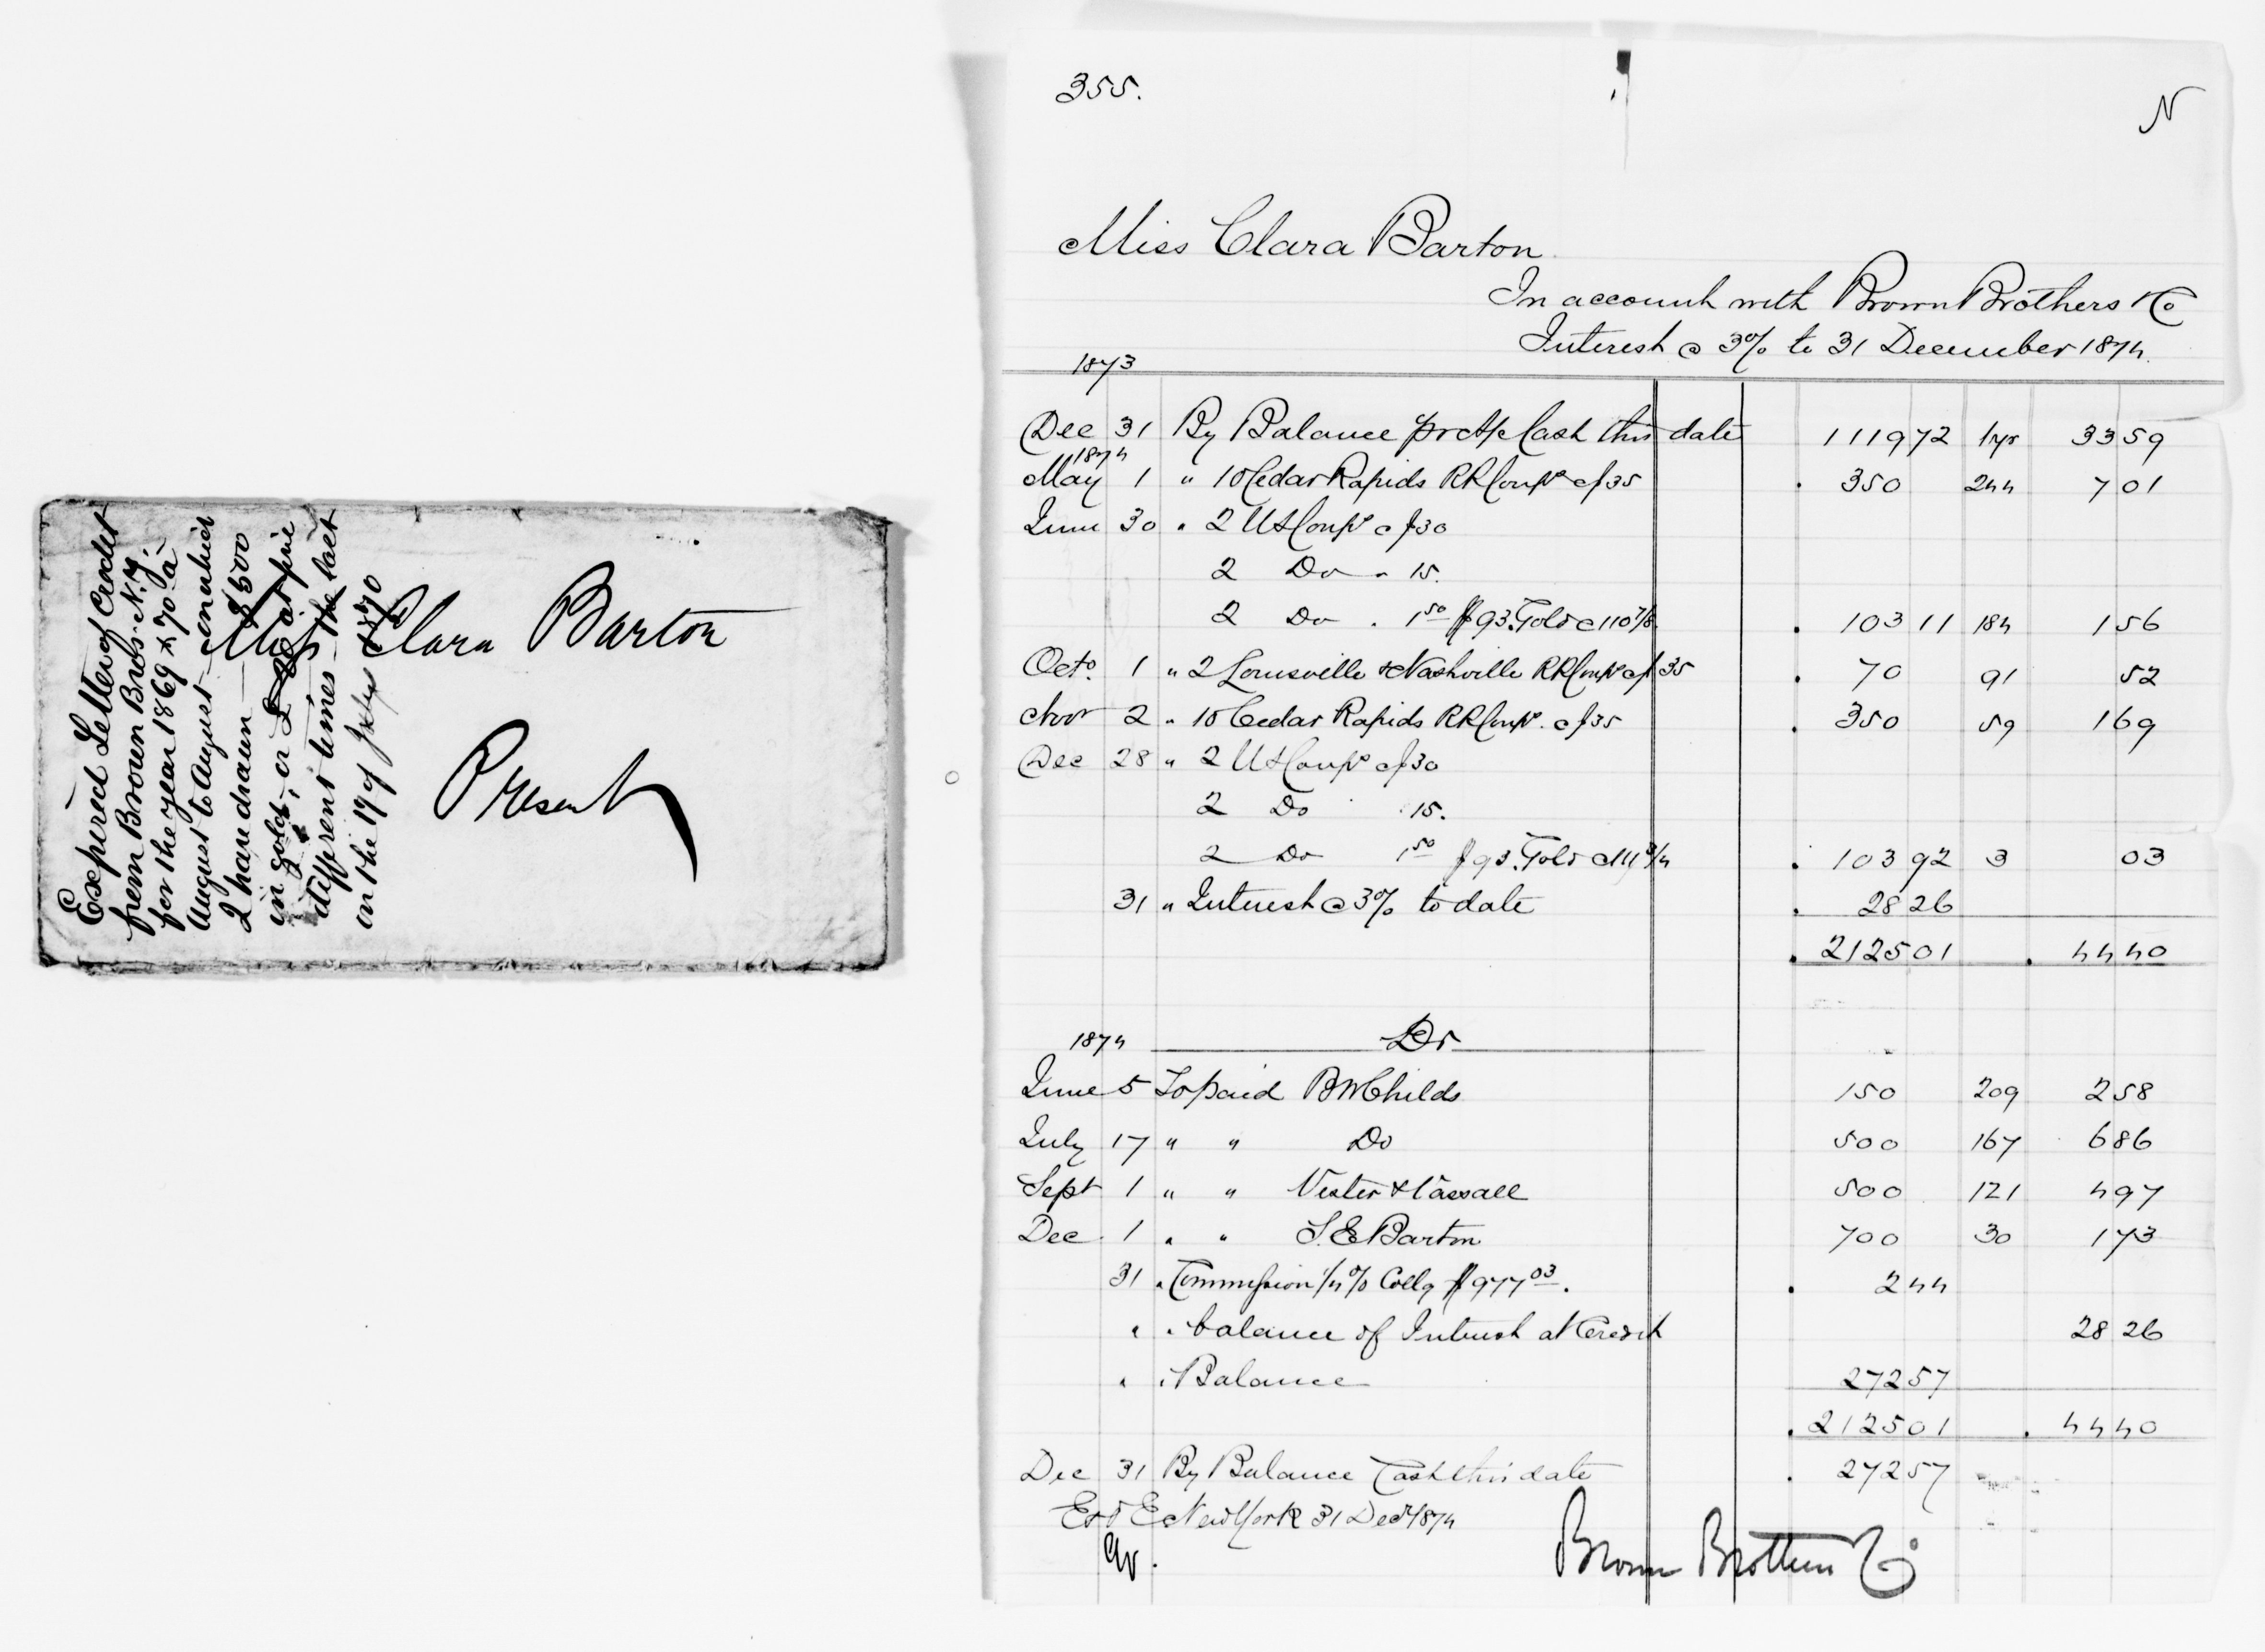 Expired Letter of Credit
from Brown Bros. N.Y.
for the year 1869 & 70 a
August to August - on which
I have drawn - $500
in gold, or £ at five
different times - the last
on the 19 of July 1870
Miss Clara Barton
Present
355.
N
Miss Clara Barton
In account with Brown Brothers & Co
Interest @ 3% to 31 December 1874.
1873
Dec 31 By Balance pr a/c Cash this date 1119 72 1yr 33 59
1874
May 1 " 10 Cedar Rapids RR Coups @ $35 . 350 244 7 01
June 30 " 2 US Coups @ $30
2 Do " 15.
2 Do . 1 50 $93. Gold @ 110 7/8 . 103 11 184 1 56
Octo. 1 " 2 Louisville & Nashville RR Coups @ $35 . 70 91 52
Novr 2 " 10 Cedar Rapids RR Coups. @ $35 . 350 59 1 69
Dec 28 " 2 US Coups @ $30
2 Do 15.
2 Do 1 50 $93. Gold @ 111 3/4 . 103 92 3 03
31 " Interest @ 3% to date . 28 26
. 2125 01 . 44 40
1874 Dr
June 5 To paid B W Childs 150 209 2 58
July 17 " " Do 500 167 6 86
Sept 1 " " Vester & Vassall 500 121 4 97
Dec. 1 " " S. E. Barton 700 30 1 73
31 " Commission 1/4% Collg $977 03. . 2 44
" " balance of Interest at Credit 28 26
" " Balance 272 57
. 2125 01 . 44 40
Dec 31 By Balance Cash this date . 272 57
E & O E New York 31 Decr 1874
Brown Brothers & Co